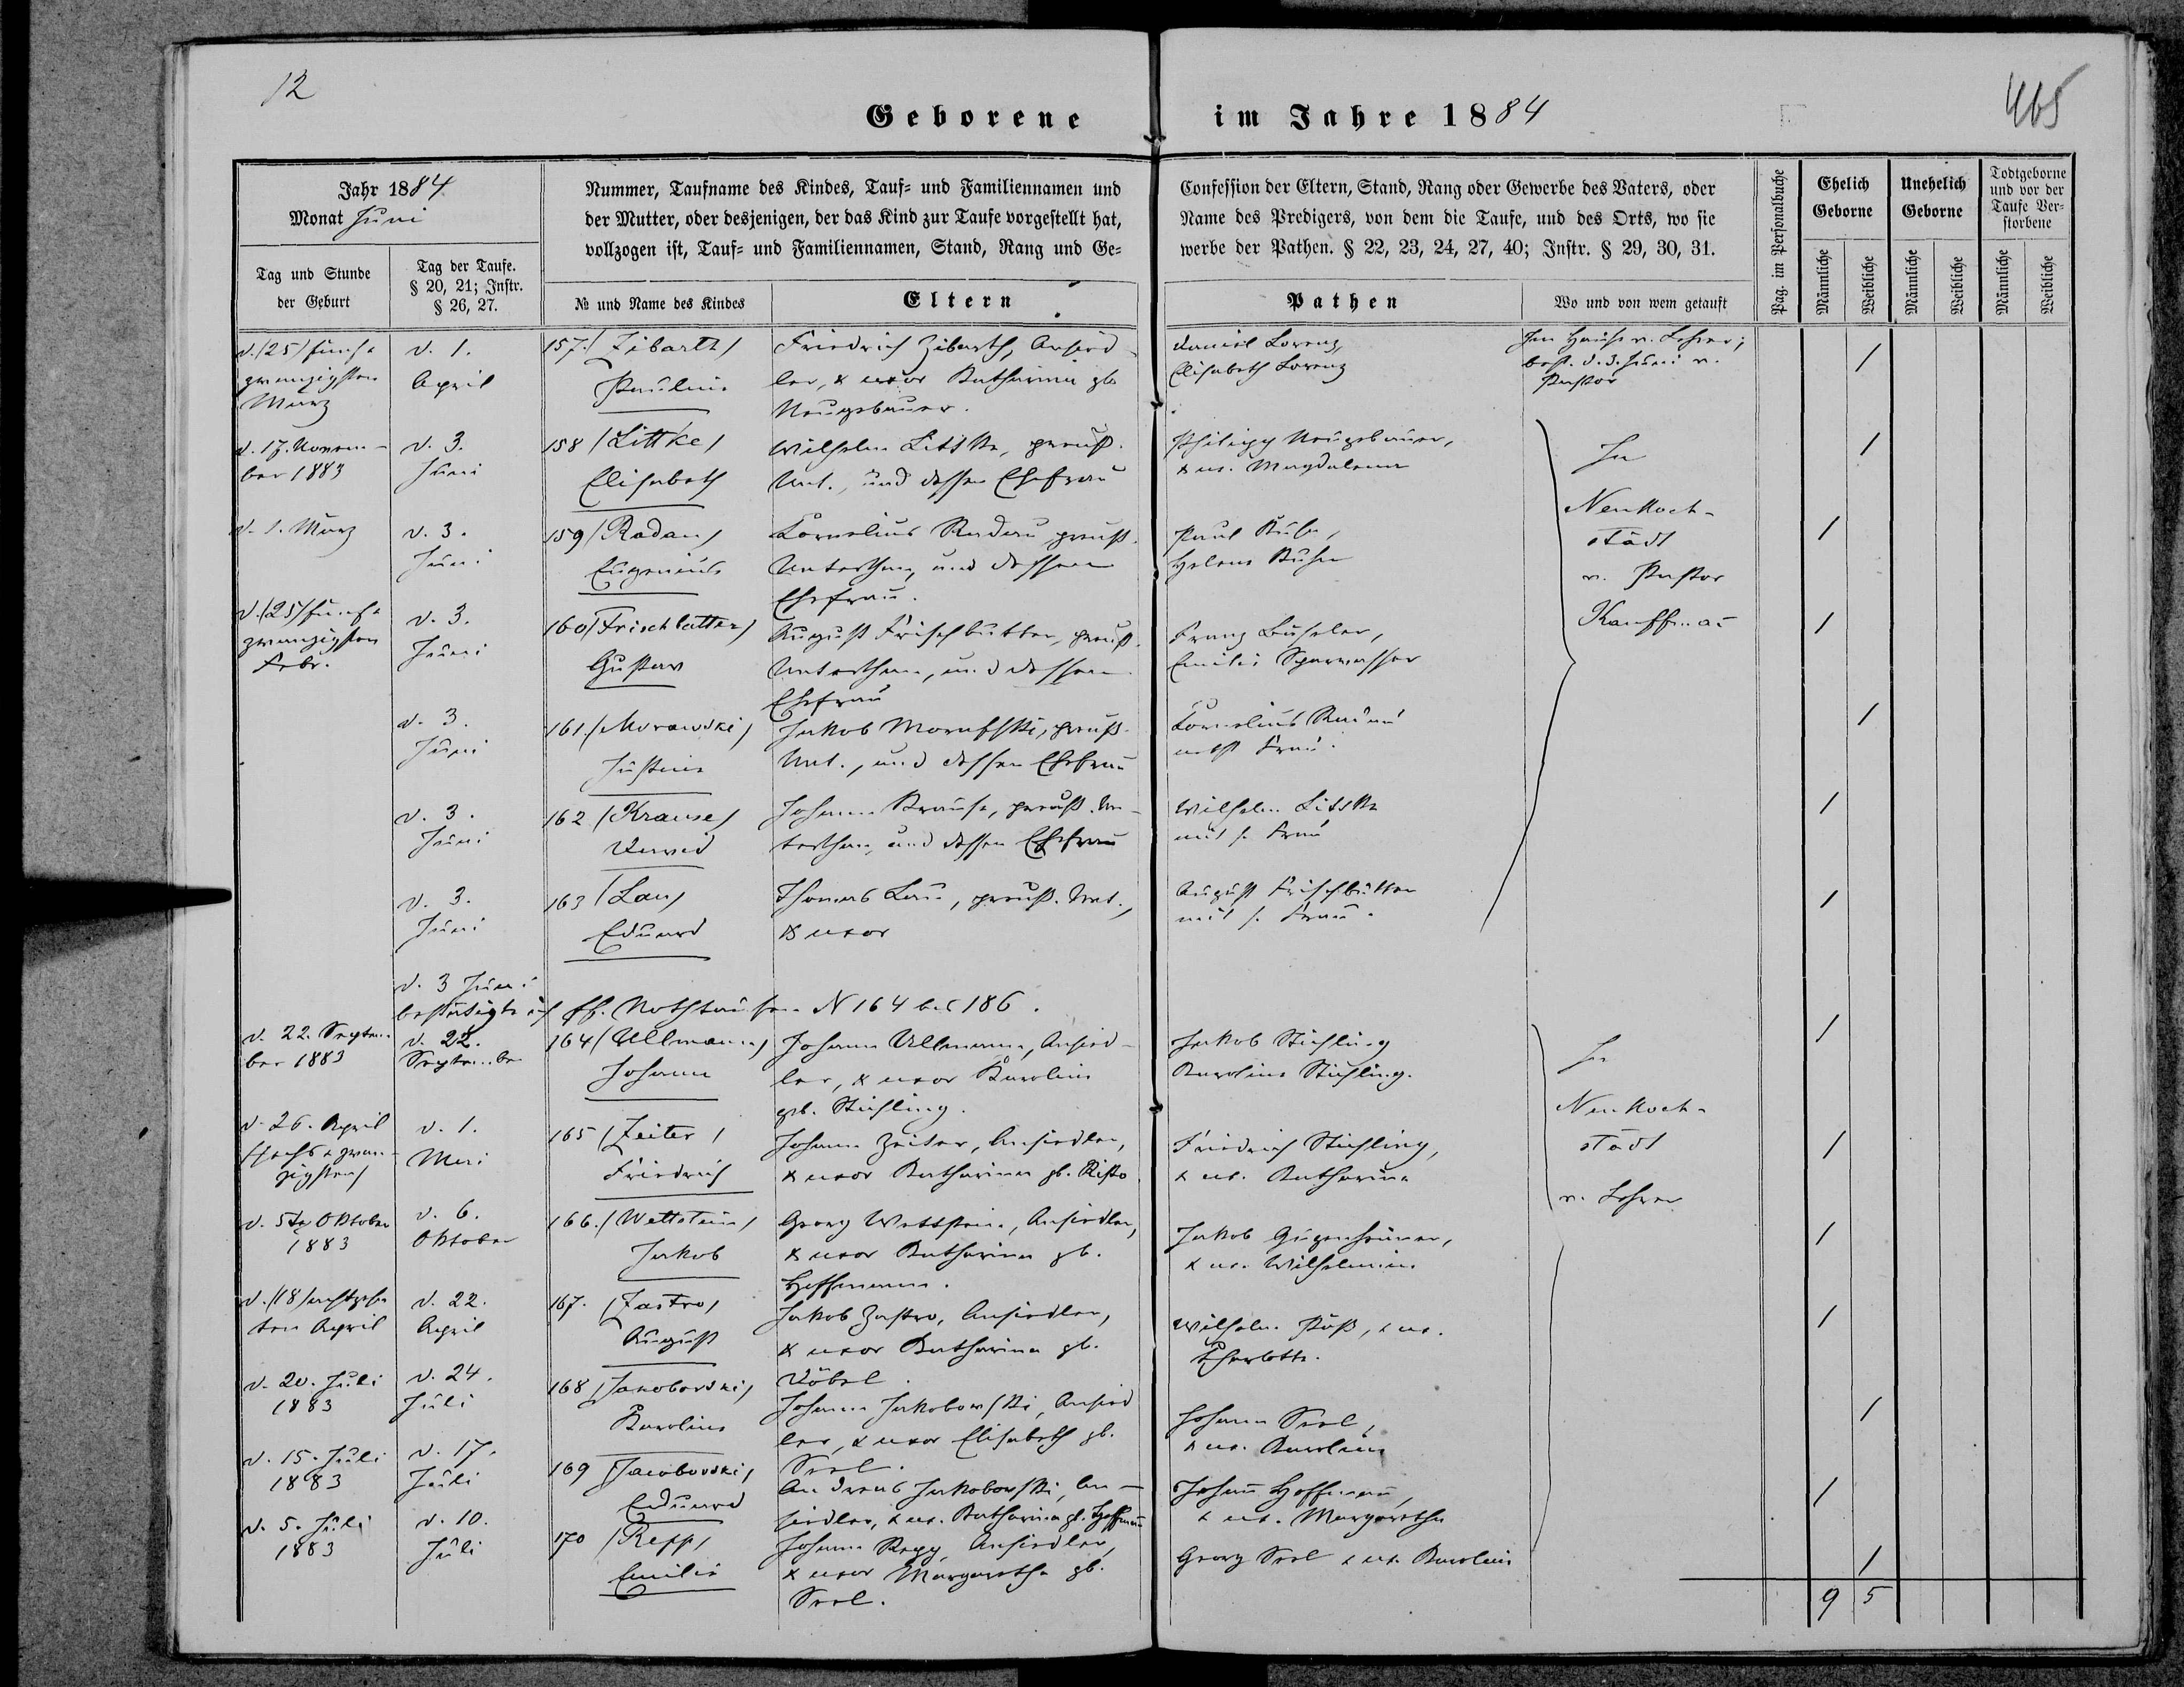 12
465
Geborene im Jahre 1884
Jahr 1884
Monat Juni
Nummer, Taufname des Kindes, Tauf- und Familiennamen und
der Mutter, oder desjenigen, der das Kind zur Taufe vorgestellt hat,
vollzogen ist, Tauf- und Familiennamen, Stand, Rang und Ge-
Confession der Eltern, Stand, Rang oder Gewerbe des Vaters, oder
Name des Predigers, von dem die Taufe, und des Orts, wo sie
werbe der Pathen. § 22, 23, 24, 27, 40; Instr. § 29, 30, 31.
Tag und Stunde
der Geburt
Tag der Taufe.
§ 20, 21; Instr.
§ 26, 27.
№ und Name des Kindes
Eltern
Pathen
Wo und von wem getauft
Pag. im Personalbuche
Ehelich
Geborne
Unehelich
Geborne
Todtgeborne
und vor der
Taufe Ver-
storbene
Männliche
Weibliche
Männliche
Weibliche
Männliche
Weibliche
d. (25) fünf &
zwanzigsten
März
d. 1.
April
157. (Zibarth)
Pauline
Friedrich Zibarth, Ansied-
ler, & uxor Katharina gb.
Neugebauer.
Daniel Lorenz,
Elisabeth Lorenz
Im Hause v. Lehrer;
best. d. 3. Juni v.
Pastor
d. 17. Novem-
ber 1883
d. 3.
Juni
158 (Littke)
Elisabeth
Wilhelm Littke, preuß.
Unt., und dessen Ehefrau
Philipp Neugebauer,
& ux. Magdalena
In
Neu Hoch-
städt
v. Pastor
Kauffman
d. 1. März
d. 3.
Juni
159 (Radau)
Eugenius
Kornelius Radau, preuß.
Unterthan, und dessen
Ehefrau.
Paul Kuhn,
Helene Kuhn
d. (25) fünf &
zwanzigsten
Febr.
d. 3.
Juni
160 (Frischbutter)
Gustav
August Frischbutter, preuß.
Unterthan, und dessen
Ehefrau
Franz
Emilie Sparwasser
d. 3.
Juni
161. (Morawski)
Justine
Jakob Morafski, preuß.
Unt., und dessen Ehefrau
Kornelius Radau
nebst Frau.
d. 3.
Juni
162 (Krause)
David
Johann Krause, preuß. Un-
terthan, und dessen Ehefrau
Wilhelm Littke
mit s. Frau
d. 3.
Juni
163 (Lau)
Eduard
Thomas Lau, preuß. Unt.,
& uxor
August Frischbutter
mit s. Frau.
d. 3 Juni
bestätigte ich ff. Nothtaufen N 164 bis 186.
d. 22. Septem-
ber 1883
d. 22.
September
164 (Ullmann)
Johann
Johann Ullmann, Ansied-
ler, & uxor Karolina
geb. Stichling.
Jakob Stichling
Karoline Stichling.
In
Neu Hoch-
städt
v. Lehrer
d. 26. April
(sechs & zwan-
zigsten)
d. 1.
Mai
165 (Zeiter)
Friedrich
Johann Zeiter, Ansiedler,
& uxor Katharina gb. Risto
Friedrich Stichling,
& ux. Katharina
d. 5ten Oktober
1883
d. 6.
Oktober
166. (Wettstein)
Jakob
Georg Wettstein, Ansiedler,
& uxor Katharina gb.
Hoffmann.
Jakob Gugenheimer,
& ux. Wilhelmine
d. (18) achtzehn
ten April
d. 22.
April
167. (Zastro)
August
Jakob Zastro, Ansiedler,
& uxor Katharina gb.
Döbel.
Wilhelm Föß, & ux.
Charlotte.
d. 20. Juli
1883
d. 24.
Juli
168 (Jakobovski)
Karoline
Johann Jakobowski, Ansied
ler, & uxor Elisabeth gb.
Seel.
Johann Seel,
& ux. Karoline
d. 15. Juli
1883
d. 17.
Juli
169 (Jacobovski)
Eduard
Andreas Jakobowski, An-
siedler, & ux. Katharina gb. Hoffman
Johann Hoffmann,
& ux. Margaretha
d. 5. Juli
1883
d. 10.
Juli
170 (Repp)
Emilie
Johann Repp, Ansiedler,
& uxor Margaretha gb.
Seel.
Georg Seel & ux. Karoline
9 5